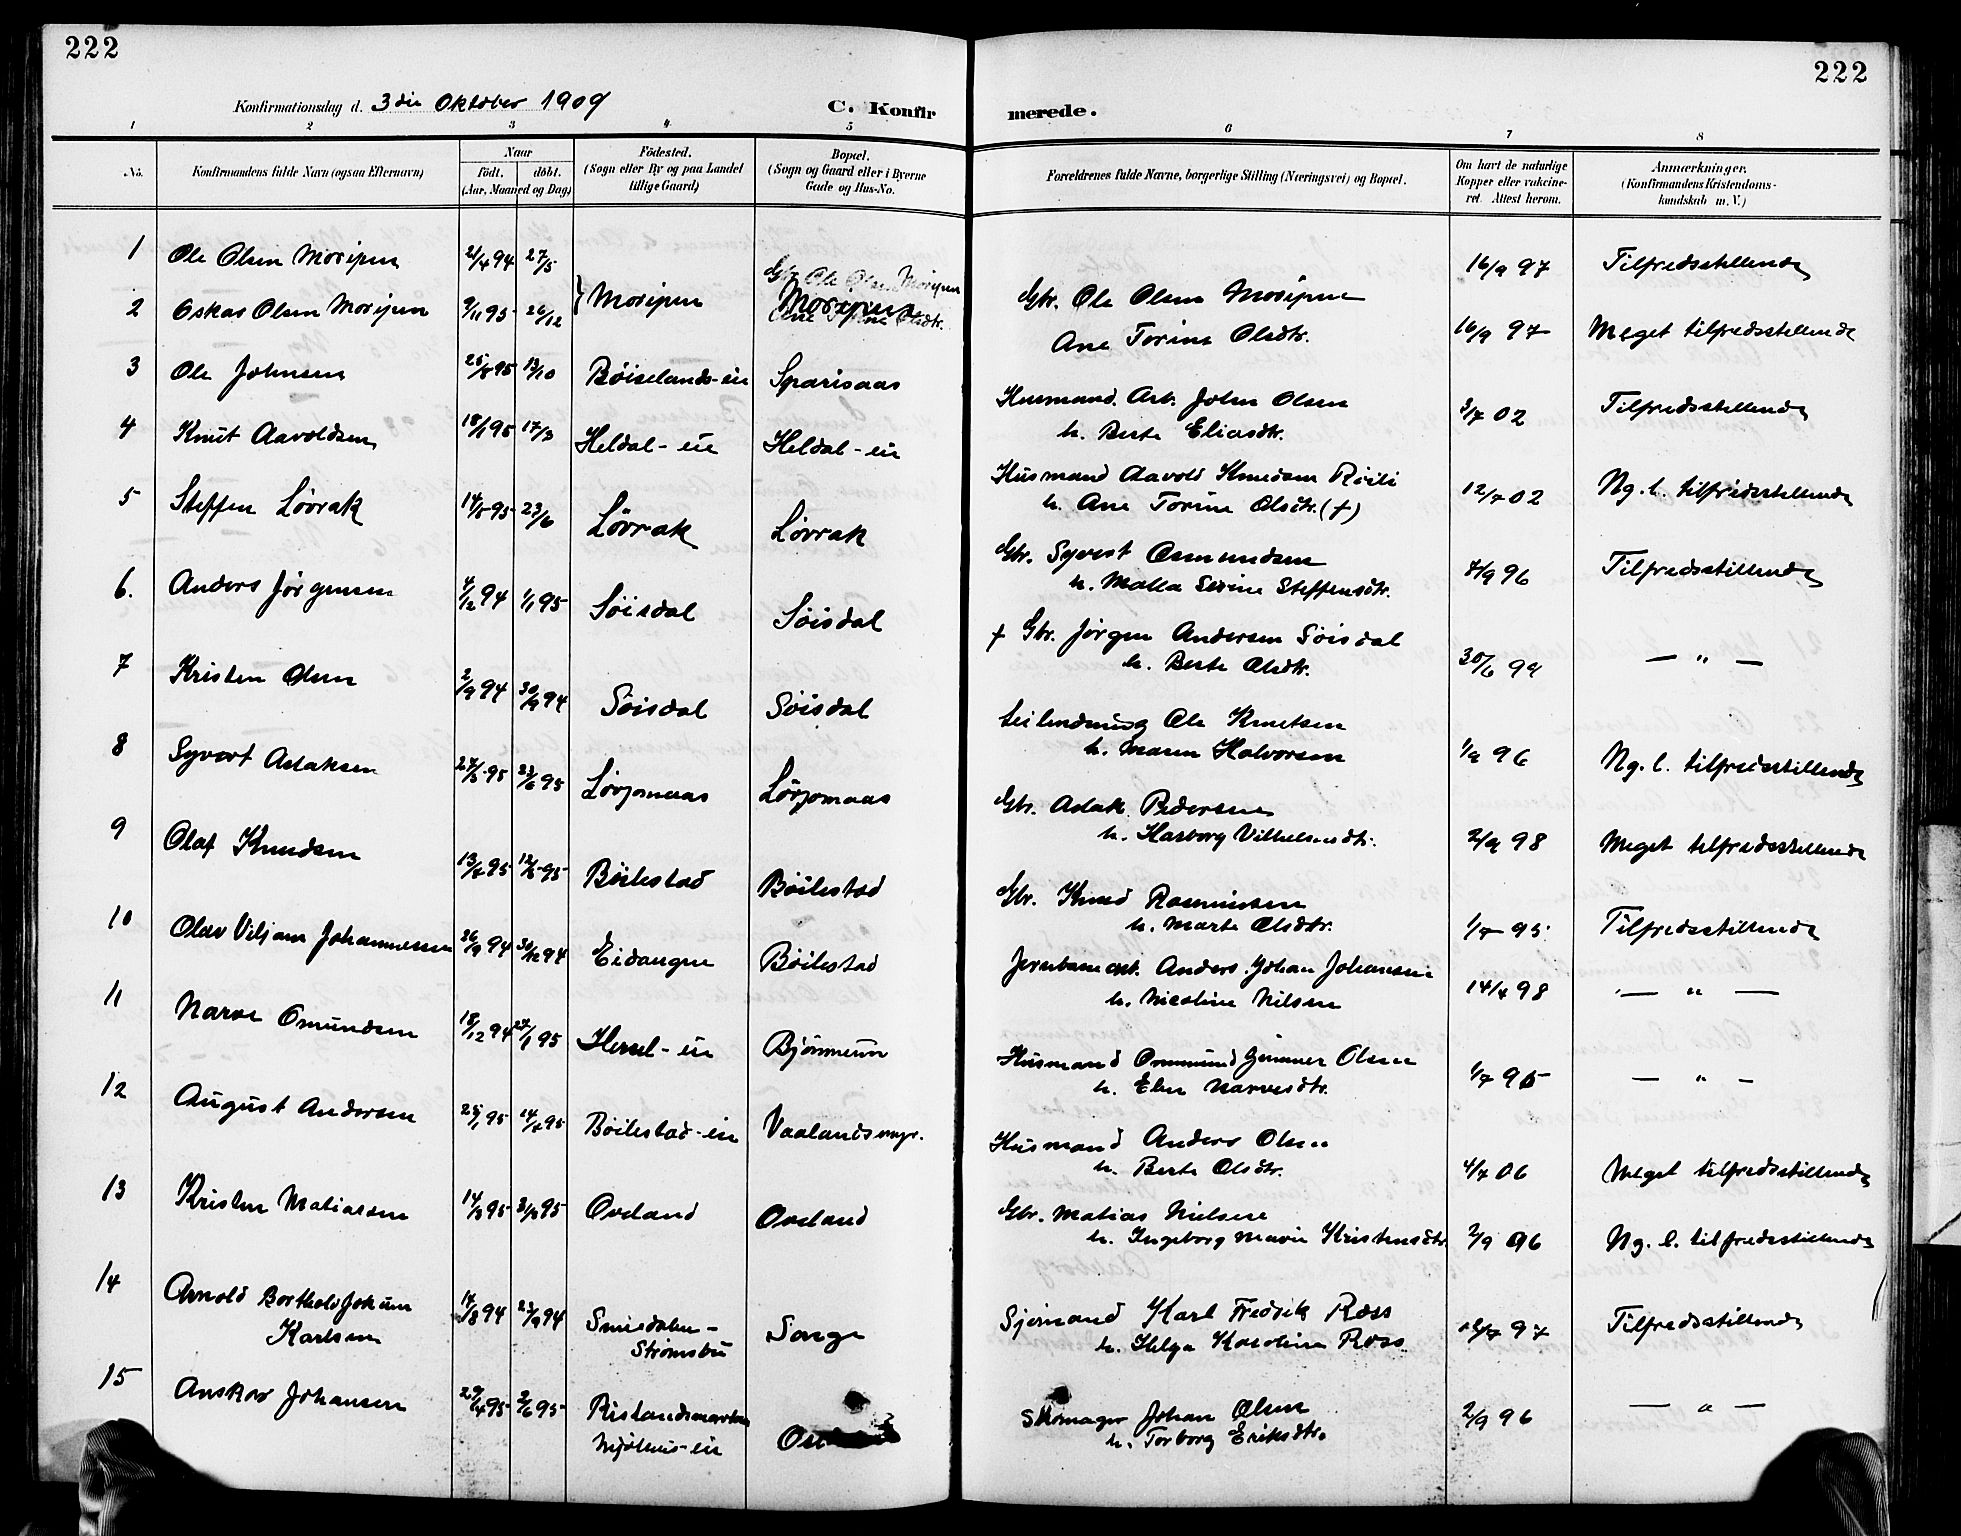 222
222
Konfirmationsdag d. 3die Oktober 1909
C. Konfirmerede.
1 2 3 4 5 6 7 8
No.
Konfirmandens fulde Navn (ogsaa Efternavn)
Naar
födt. döbt.
(Aar, Maaned og Dag)
Födested.
(Sogn eller By og paa Landet
tillige Gaard)
Bopæl.
(Sogn og Gaard eller i Byerne
Gade og Hus-No.
Forældrenes fulde Navne, borgerlige Stilling (Næringsvei) og Bopæl.
Om havt de naturlige
Kopper eller vakcine-
ret. Attest herom.
Anmærkninger.
(Konfirmandens Kristendoms-
kundskab m. V.)
1 Ole Olsen Moripen 21/4 94 27/5 } Moripen Gbr. Ole Olsen Moripen 16/9 97 Tilfredsstillende
2 Oskar Olsen Moripen 9/11 95 26/12 Moripen Ane Torine Olsdtr. 16/9 97 Meget tilfredsstillende
3 Ole Johnsen 25/8 95 13/10 Böiselands-eie Sparisaas Husmand. Arb. John Olsen 3/7 02 Tilfredsstillende
h. Berte Eliasdtr.
4 Knut Aavoldsen 18/1 95 17/3 Heldal-eie Heldal-eie Husmand Aavold Knudsen Röili 12/7 02 Ng. l. tilfredsstillende
h. Ane Torine Olsdtr. (†)
5 Steffen Lövrak 14/5 95 23/6 Lövrak Lövrak Gbr. Syvert Osmundsen 7/9 96 Tilfredsstillende
h. Malla Serine Steffensdtr.
6. Anders Jörgensen 4/12 94 1/1 95 Söisdal Söisdal † Gbr. Jörgen Andersen Söisdal 30/6 99 — " —
h. Berte Olsdtr.
7 Kristen Olsen 2/9 94 30/9 94 Söisdal Söisdal Leilending Ole Knutsen 1/9 96 Ng. l. tilfredsstillende
h. Maren Halvorsen
8 Syvert Aslaksen 27/5 95 23/6 95 Lövjomaas Lövjomaas Gbr. Aslak Pedersen 2/9 98 Meget tilfredsstillende
h. Karborg Vilhelmsdtr.
9 Olaf Knudsen 13/4 95 12/5 95 Böilestad Böilestad Gbr. Knud Rasmussen 1/7 95 Tilfredsstillende
h. Marte Olsdtr.
10 Olav Viljam Johannessen 26/9 94 30/12 94 Eidanger Böilestad Jernbanearb. Anders Johan Johansen 14/4 98 — " —
h. Nicoline Nilsen
11 Narve Omundsen 18/12 94 27/1 95 Hessel-eie Husmand Ommund Gunner Olsen 1/7 95 — " —
h. Elen Narvesdtr.
12 August Andersen 25/1 95 14/4 95 Böilestad-eie Vaalandsmyr. Husmand Anders Olsen 4/7 06 Meget tilfredsstillende
h. Berte Olsdtr.
13 Kristen Matiassen 14/2 95 31/3 95 Oveland Oveland Gbr. Matias Nielsen 2/9 96 Ng. l. tilfredsstillende
h. Ingeborg Marie Kristensdtr.
14 Arnold Berthold Johan 14/8 94 23/9 94 Smedalen- Songe Sjömand Karl Fredrik Ross 97 Tilfredsstillende
Karlsen Strömsbu h. Helga Karoline Ross
15 Anskar Johansen 29/4 95 2/6 95 Skomager Johan Olsen 2/9 96 — " —
Mjölhus-eie h. Torborg Eriksdtr.